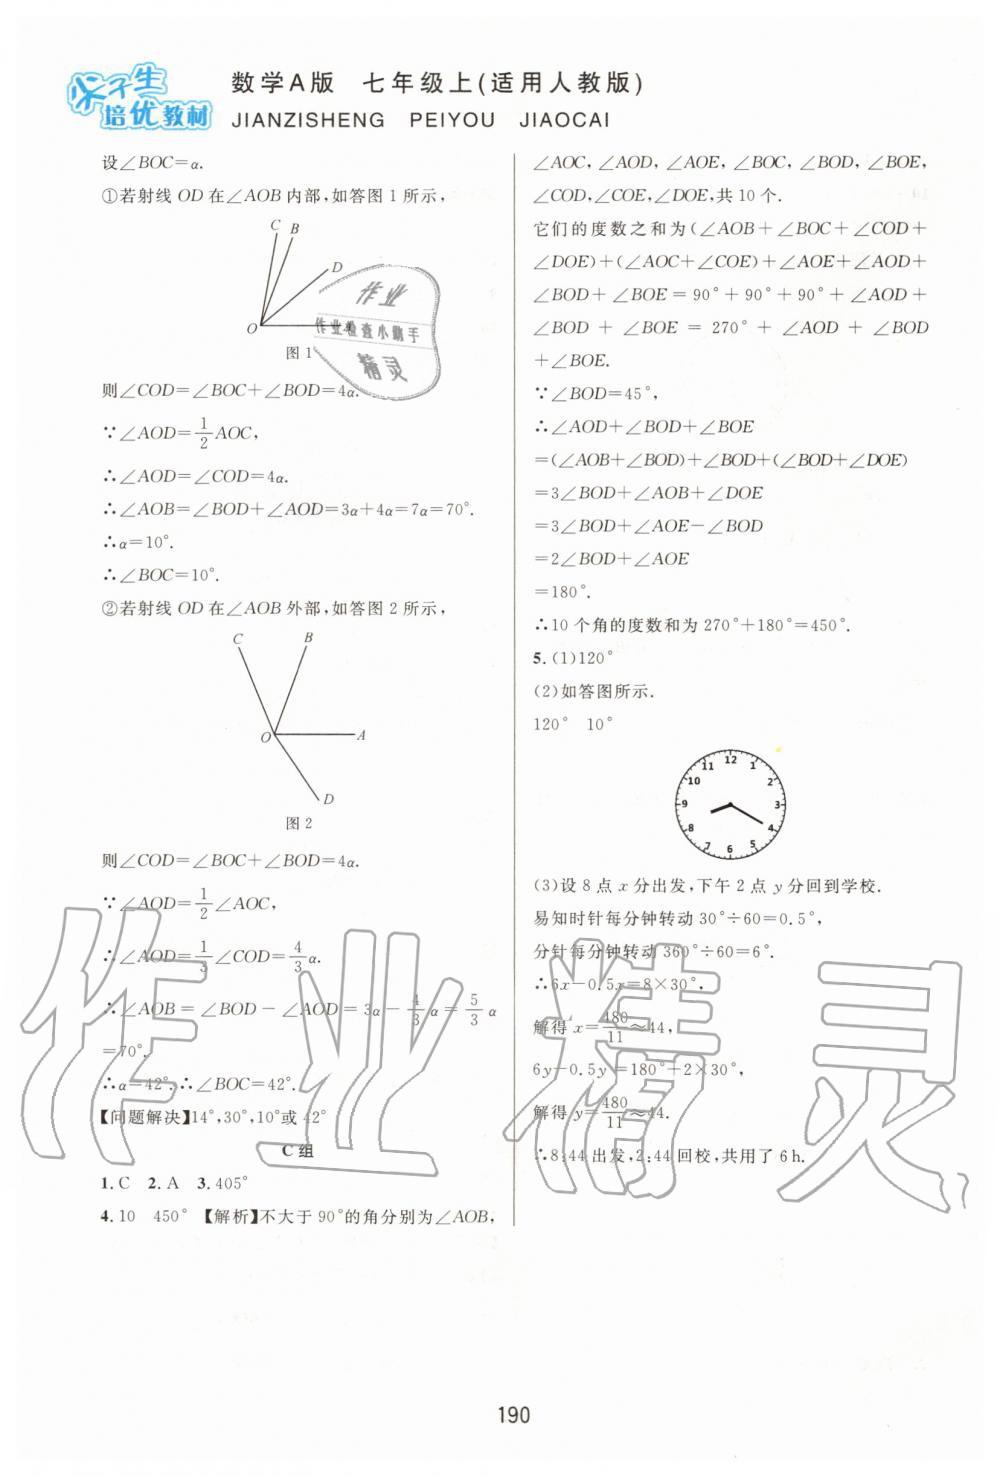 尖子生
培优教材
数学A版 七年级上(适用人教版)
JIANZISHENG PEIYOU JIAOCAI
设∠BOC=α.
①若射线 OD 在∠AOB 内部,如答图 1 所示,
C B
D
O
图 1
则∠COD=∠BOC+∠BOD=4α.
∵∠AOD=1/2AOC,
∴∠AOD=∠COD=4α.
∴∠AOB=∠BOD+∠AOD=3α+4α=7α=70°.
∴α=10°.
∴∠BOC=10°.
②若射线 OD 在∠AOB 外部,如答图 2 所示,
C B
O A
D
图 2
则∠COD=∠BOC+∠BOD=4α.
∵∠AOD=1/2∠AOC,
∴∠AOD=1/3∠COD=4/3α.
∴∠AOB=∠BOD-∠AOD=3α-4/3α=5/3α
=70°.
∴α=42°.∴∠BOC=42°.
【问题解决】14°,30°,10°或 42°
C 组
1.C 2.A 3.405°
4.10 450° 【解析】不大于 90°的角分别为∠AOB,
∠AOC,∠AOD,∠AOE,∠BOC,∠BOD,∠BOE,
∠COD,∠COE,∠DOE,共 10 个.
它们的度数之和为(∠AOB+∠BOC+∠COD+
∠DOE)+(∠AOC+∠COE)+∠AOE+∠AOD+
∠BOD+∠BOE=90°+90°+90°+∠AOD+
∠BOD+∠BOE=270°+∠AOD+∠BOD
+∠BOE.
∵∠BOD=45°,
∴∠AOD+∠BOD+∠BOE
=(∠AOB+∠BOD)+∠BOD+(∠BOD+∠DOE)
=3∠BOD+∠AOB+∠DOE
=3∠BOD+∠AOE-∠BOD
=2∠BOD+∠AOE
=180°.
∴10 个角的度数和为 270°+180°=450°.
5.(1)120°
(2)如答图所示.
120° 10°
12 1 2 3 4 5 6 7 8 9 10 11
(3)设 8 点 x 分出发,下午 2 点 y 分回到学校.
易知时针每分钟转动 30°÷60=0.5°,
分针每分钟转动 360°÷60=6°.
∴6x-0.5x=8×30°,
解得 x=480/11≈44,
6y-0.5y=180°+2×30°,
解得 y=480/11≈44.
∴8:44 出发,2:44 回校,共用了 6 h.
190
作业
作业检查小助手
精灵
作业精灵